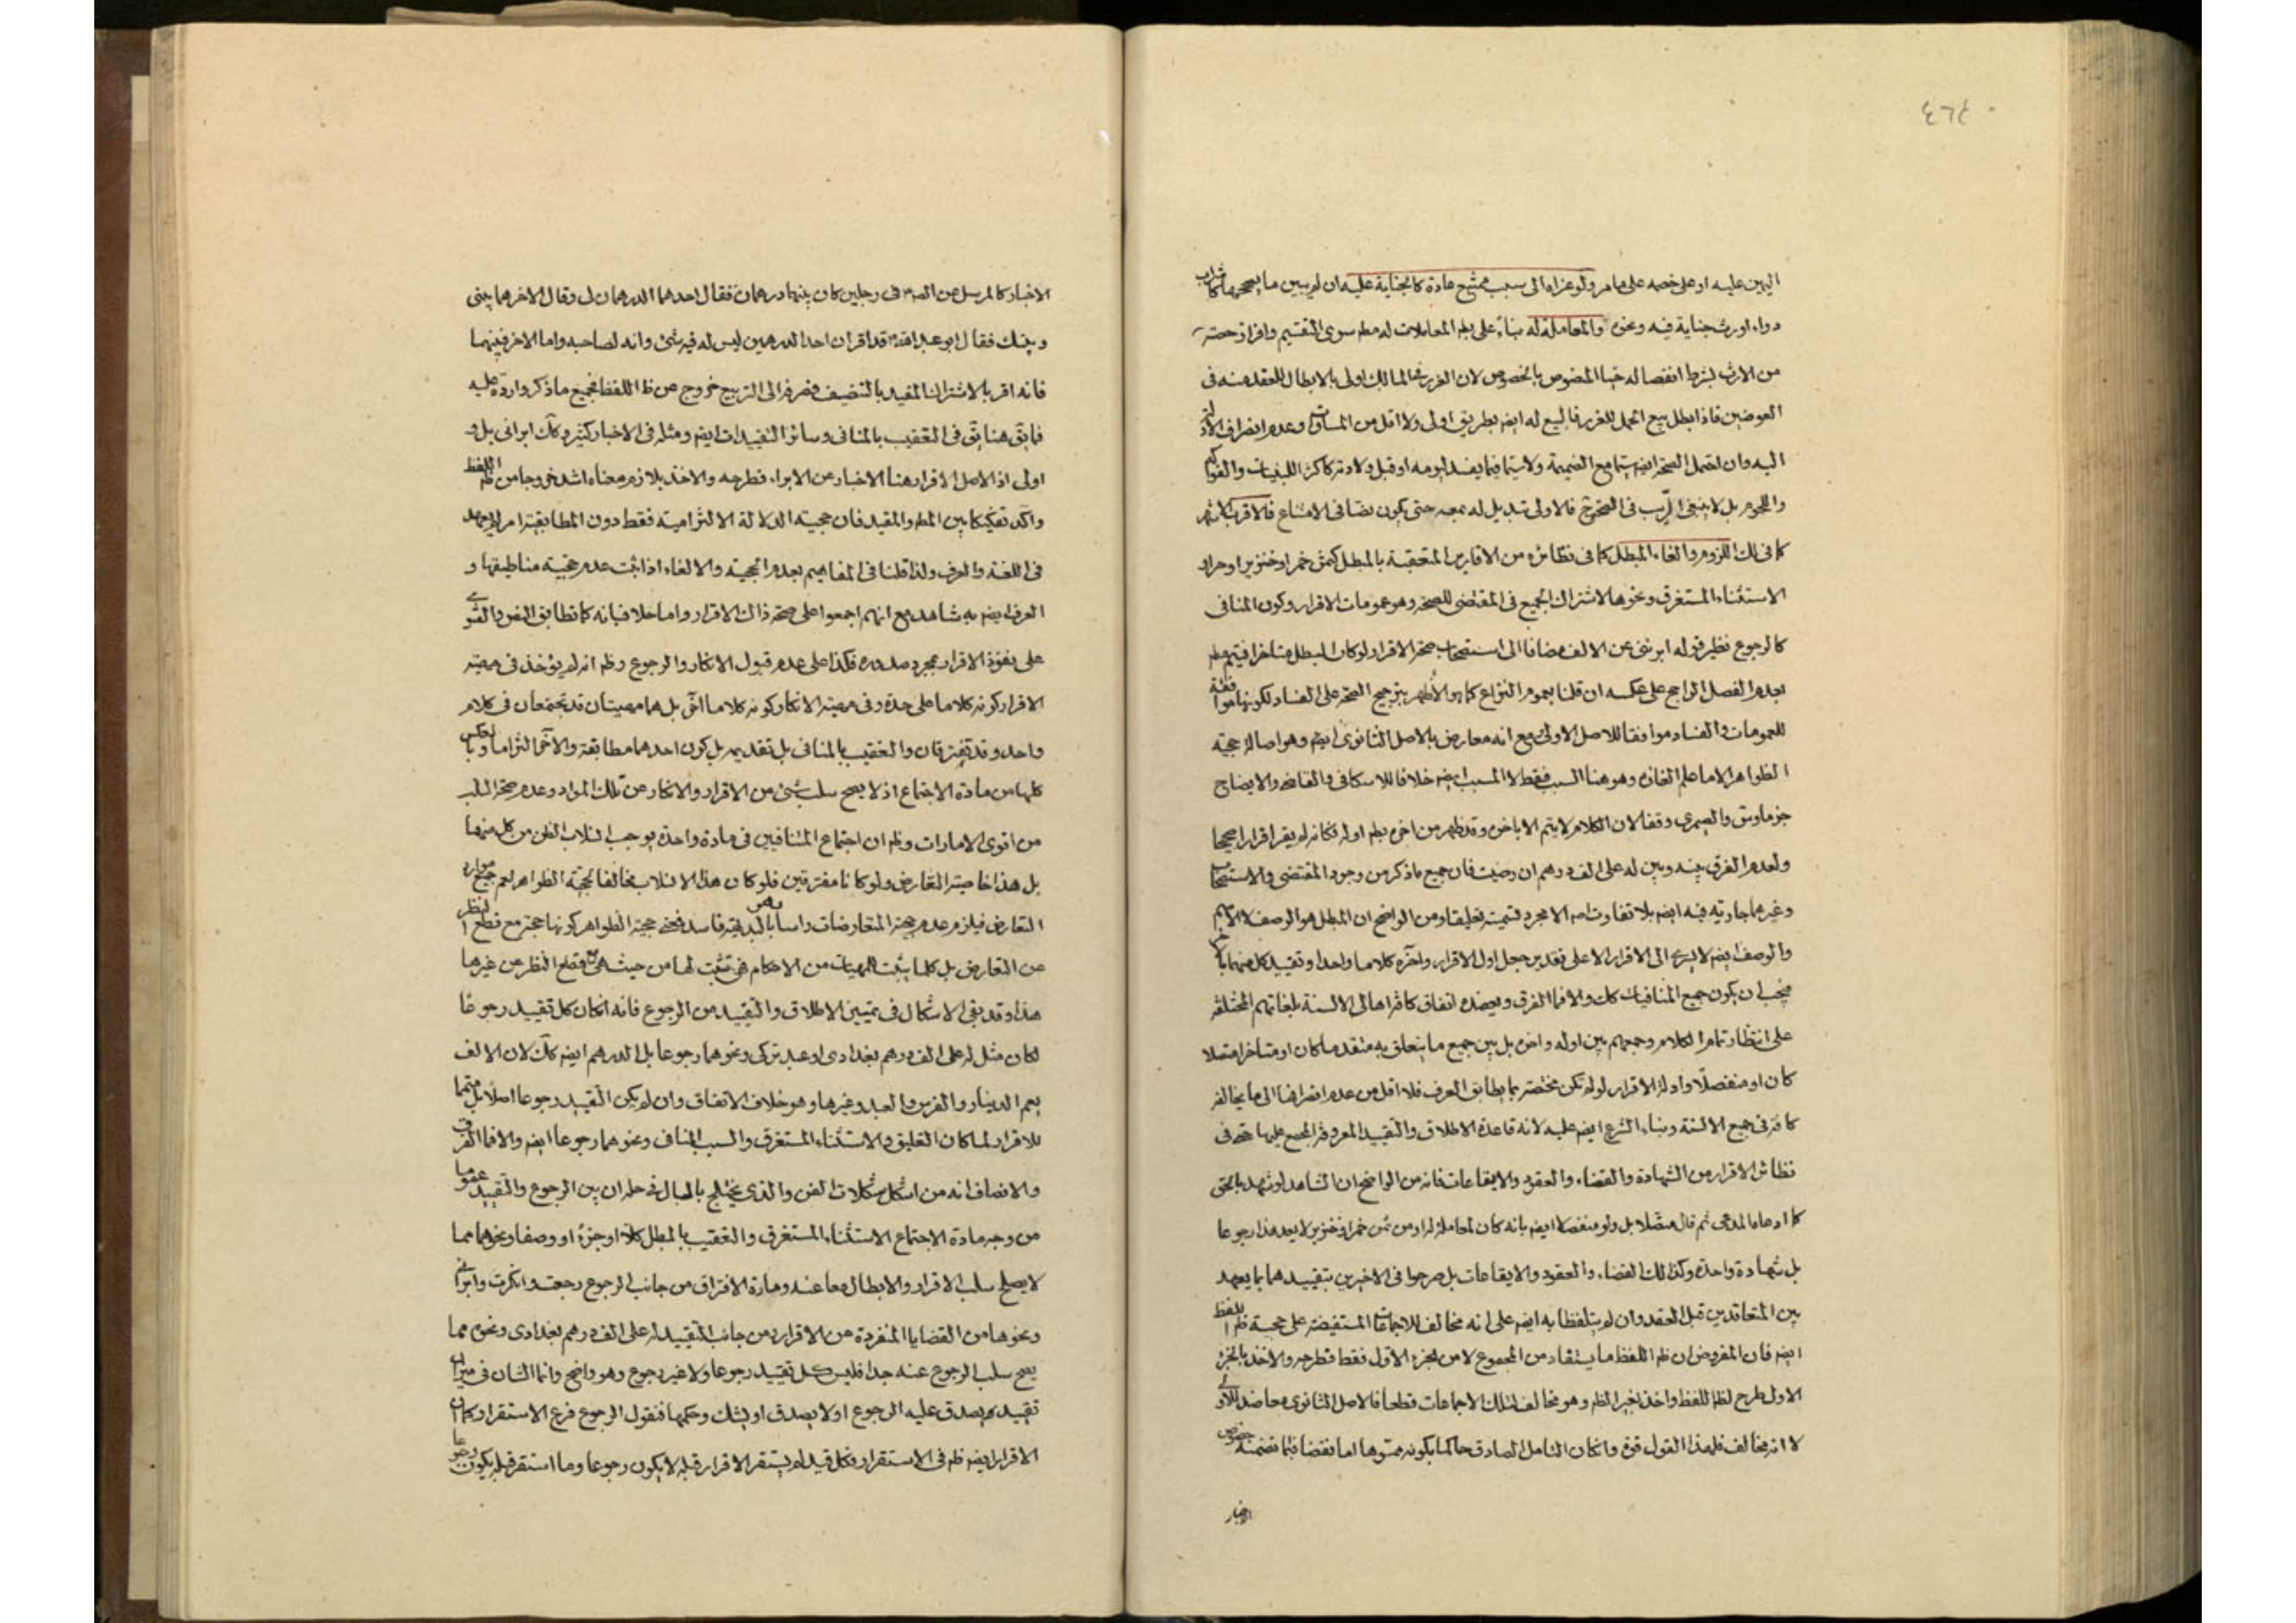 ٤٦٤
اليمين عليه او على خصمه على ما مر ولو عزاه الى سبب ممتنع عادة كالجناية عليه ان لم يبين ما يصححها كشراب
دواء اورث جناية فيه ونحوه والمعاملة له بناء على بطلان المعاملات له مطم سوى التقسيم وافراز حصته
من الارث بشرط انفصاله حيا المنصوص بالخصوص لان الغرر في المالك اولى بالابطال للعقد منه في
العوضين فاذا ابطل بيع الحمل للغرر فالبيع له ايضم بطريق اولى ولا اقل من المساوات وعدم انصراف الادلة
اليه وان احتمل الصحة ايضم سيما مع الضميمة ولا سيما فيما يفسد ليومه او قبل ولادته كاكثر اللبنيات والفواكه
واللحوم بل لا ينبغي الريب في الصحة ح فالاولى تبديل له بمعه حتى يكون نصا في الامتناع فالاقرب كاشهر
كما في لك اللزوم والغاء المبطل كما في نظائره من الاقارير المتعقبة بالمبطل كمن ثمن خمر او خنزير او حرا و
الاستثناء المستغرق ونحوها لاشتراك الجميع في المقتضى للصحة وهو عمومات الاقرار وكون المنافى
كالرجوع نظير قوله ابرئنى عن الالف مضافا الى استصحاب صحة الاقرار لو كان المبطل متاخرا فيتم مطم
بعدم الفصل الراجح على عكسه ان قلنا بعموم النزاع كما هو الأظهر بترجيح الصحة على الفساد لكونها موافقة
للعمومات والفساد موافقا للاصل الاولى مع انه معارض بالاصل الثانوى ايضم وهو اصالة حجية
الظواهر الا ما علم الغاؤه وهو هنا السبب فقط لا المسبب ايضم خلافا للاسكافى والقاضى والايضاح
جزما وسق والصيمرى وقفا لان الكلام لا يتم الا باخره وقد ظهر من اخره بطم اوله فكانه لم يقر اقرارا صحيحا
ولعدم الفرق بينه وبين له على الف درهم ان رضيت فان جميع ما ذكر من وجود المقتضى والاستصحاب
وغيرهما جارية فيه ايضم بلا تفاوت اصم الا مجرد تسميته تعليقا ومن الواضح ان المبطل هو الوصف لا الاسم
والوصف ايضم لا يسرى الى الاقرار الا على تقدير جعل اول الاقرار واخره كلاما واحدا وتقييد كل منهما بالاخر
فيجب ان يكون جميع المنافيات كك والا فما الفرق ويعضده اتفاق كافة اهالى الالسنة بلغاتهم المختلفة
على انتظار تمام الكلام وجمعهم بين اوله واخره بل بين جميع ما يتعلق به متقدما كان او متاخرا متصلا
كان او منفصلا وادلة الاقرار لو لم تكن مختصة بما يطابق العرف فلا اقل من عدم انصرافها الى ما يخالفه
كافة في جميع الالسنة وبناء الشرع ايضم عليه لانه قاعدة الاطلاق والتقييد المعروفة المجمع عليها حتى في
نظائر الاقرار من الشهادة والقضاء والعقود والايقاعات فانه من الواضح ان الشاهد لو شهد بالحق
كما ادعاه المدعى ثم قال متصلا بل ولو منفصلا ايضم بانه كان لمعاملة له او من ثمن خمر او خنزير لا يعد هذا رجوعا
بل شهادة واحدة وكذلك القضاء والعقود والايقاعات بل صرحوا في الاخيرين بتقييدهما بما يعهد
بين المتعاقدين قبل العقد وان لم يتلفظا به ايضم على انه مخالف للاجماعات المستفيضة على حجية ظم اللفظ
ايضم فان المفروض ان ظم اللفظ ما يستفاد من المجموع لا من الجزء الاول فقط فطرحه والاخذ بالجزء
الاول طرح لظم اللفظ واخذ بغير الظم وهو مخالف لتلك الاجماعات قطعا فالاصل الثانوى معاضد للاولى
لا انه مخالف فلهذا القول قوة وان كان التامل الصادق حاكما بكونه مموها اما نقضا فبما تضمنه خصوص
الاخبار
الاخبار كالمرسل عن الصم في رجلين كان بينهما درهمان فقال احدهما الدرهمان لى وقال الاخر هما بينى
وبينك فقال ابو عبد الله قد اقر ان احد الدرهمين ليس له فيه شئ وانه لصاحبه واما الاخر فبينهما
فانه اقر بالاشتراك المفيد بالتنصيف فصرفه الى التربيع خروج عن ظ اللفظ فجميع ما ذكر واردة عليه
فما يق هنا يق في التعقيب بالمنافى وسائر التقييدات ايضم ومثله في الاخبار كثير وكك ابرانى بل و
اولى اذ الاصل الاقرار هنا الاخبار عن الابراء فطرحه والاخذ بلازم معناه اشد خروجا من ظم اللفظ
واكد تفكيكا بين المطم والمقيد فان حجية الدلالة الالتزامية فقط دون المطابقية امر لم يعهد
في اللغة والعرف ولذا قلنا في المفاهيم بعدم الحجية والالغاء اذا ثبت عدم حجية مناطيقها و
العرف ايضم به شاهد مع انهم اجمعوا على صحة ذلك الاقرار واما حلا فبانه كما تطابق النص والفتوى
على نفوذ الاقرار بمجرد صدوره فكذا على عدم قبول الانكار والرجوع وظم انه لم يؤخذ في مهية
الاقرار كونه كلاما على حدة وفي مهية الانكار كونه كلاما اخر بل هما مهيتان قد تجتمعان في كلام
واحد وقد تفترقان والتعقيب بالمنافى بل تقديمه بل كون احدهما مطابقة والاخر التزاما وبالعكس
كلها من مادة الاجتماع اذ لا يصح سلب شئ من الاقرار والانكار عن تلك المواد وعدم صحة السلب
من اقوى الامارات وظم ان اجتماع المتنافيين في مادة واحدة يوجب انسلاب الظن من كل منهما
بل هذا خاصية التعارض ولو كانا مفترقين فلو كان هذا الانسلاب مخالفا لحجية الظواهر لعم جميع موارد
التعارض فيلزم عدم حجية المتعارضات راسا وهو بالبديهة فاسد فمعنى حجية الظواهر كونها حجة مع قطع النظر
عن التعارض بل كلما يثبت للمهيات من الاحكام فهى تثبت لها من حيث هى مع قطع النظر عن غيرها
هذا وقد بقى الاشكال في تمييز الاطلاق والتقييد من الرجوع فانه ان كان كل تقييد رجوعا
لكان مثل له على الف درهم بغدادى او عبد تركى ونحوهما رجوعا بل الدرهم ايضم كك لان الالف
يعم الدينار والفرس والعبد وغيرها وهو خلاف الاتفاق وان لم يكن التقييد رجوعا اصلا بل متمما
للاقرار لما كان التعليق والاستثناء المستغرق والسبب المنافى ونحوهما رجوعا ايضم والا فما الفرق
والانصاف انه من اشكل مشكلات الفن والذى يختلج بالبال في حله ان بين الرجوع والتقييد عموما
من وجه مادة الاجتماع الاستثناء المستغرق والتعقيب بالمبطل كلا او جزءا او وصفا ونحوهما مما
لا يصلح سلب الاقرار والابطال معا عنه ومادة الافتراق من جانب الرجوع رجعت وانكرت وابرانى
ونحوها من القضايا المنفردة عن الاقرار ومن جانب التقييد له على الف درهم بغدادى ونحوه مما
يصح سلب الرجوع عنه جدا فليس كل تقييد رجوعا ولا غير رجوع وهو واضح وانما الشان في ميزان
تقييد يصدق عليه الرجوع او لا يصدق او يشك وحكمها فنقول الرجوع فرع الاستقرار كما ان
الاقرار ايضم ظم في الاستقرار فكل قيد لم يستقر الاقرار قبله لا يكون رجوعا وما استقر قبله يكون رجوعا